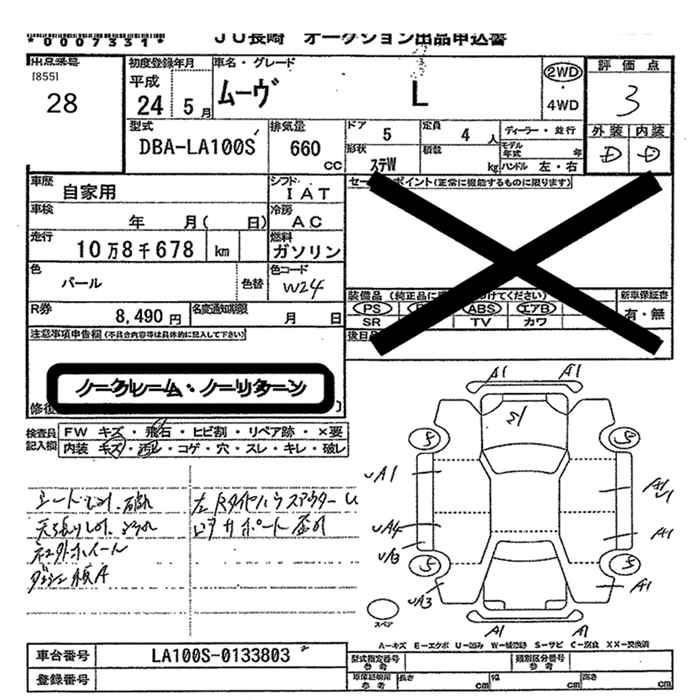 *0007331*
JU長崎 オークション出品申込書
出品番号
[855]
28
初度登録年月
平成
24 5月
車名・グレード
ムーヴ L
2WD
・
4WD
評価点
3
外装 内装
D D
型式
DBA-LA100S
排気量
660
CC
ドア 5
定員 4人
ディーラー・並行
形状
ステW
積載
kg
モデル年式 年
ハンドル 左・右
車歴
自家用
シフト
IAT
セールスポイント(正常に機能するものに限ります)
車検
年 月( 日)
冷房
AC
走行
10万8千678 km
燃料
ガソリン
色
パール
色替
色コード
W24
装備品
PS
ABS エアB
SR TV カワ
新車保証書
有・無
R券
8,490円
名変通知期限
月 日
注意事項申告欄(不具合内容等は具体的に記入して下さい)
ノークレーム・ノーリターン
検査員記入欄
FW キズ・飛石・ヒビ割・リペア跡・×要
内装 キズ・汚レ・コゲ・穴・スレ・キレ・破レ
シートよごれ、破れ
天張りよごれ
社外ホイール
左Rタイヤハウスアウター
A1 A1
A1
A1
A1
A1 A1
スペア
A-キズ E-エクボ U-凹み W-補修跡 S-サビ C-腐食 XX-交換済
車台番号
LA100S-0133803
登録番号
型式指定番号 参考
類別区分番号 参考
長さ cm
幅 cm
高さ cm